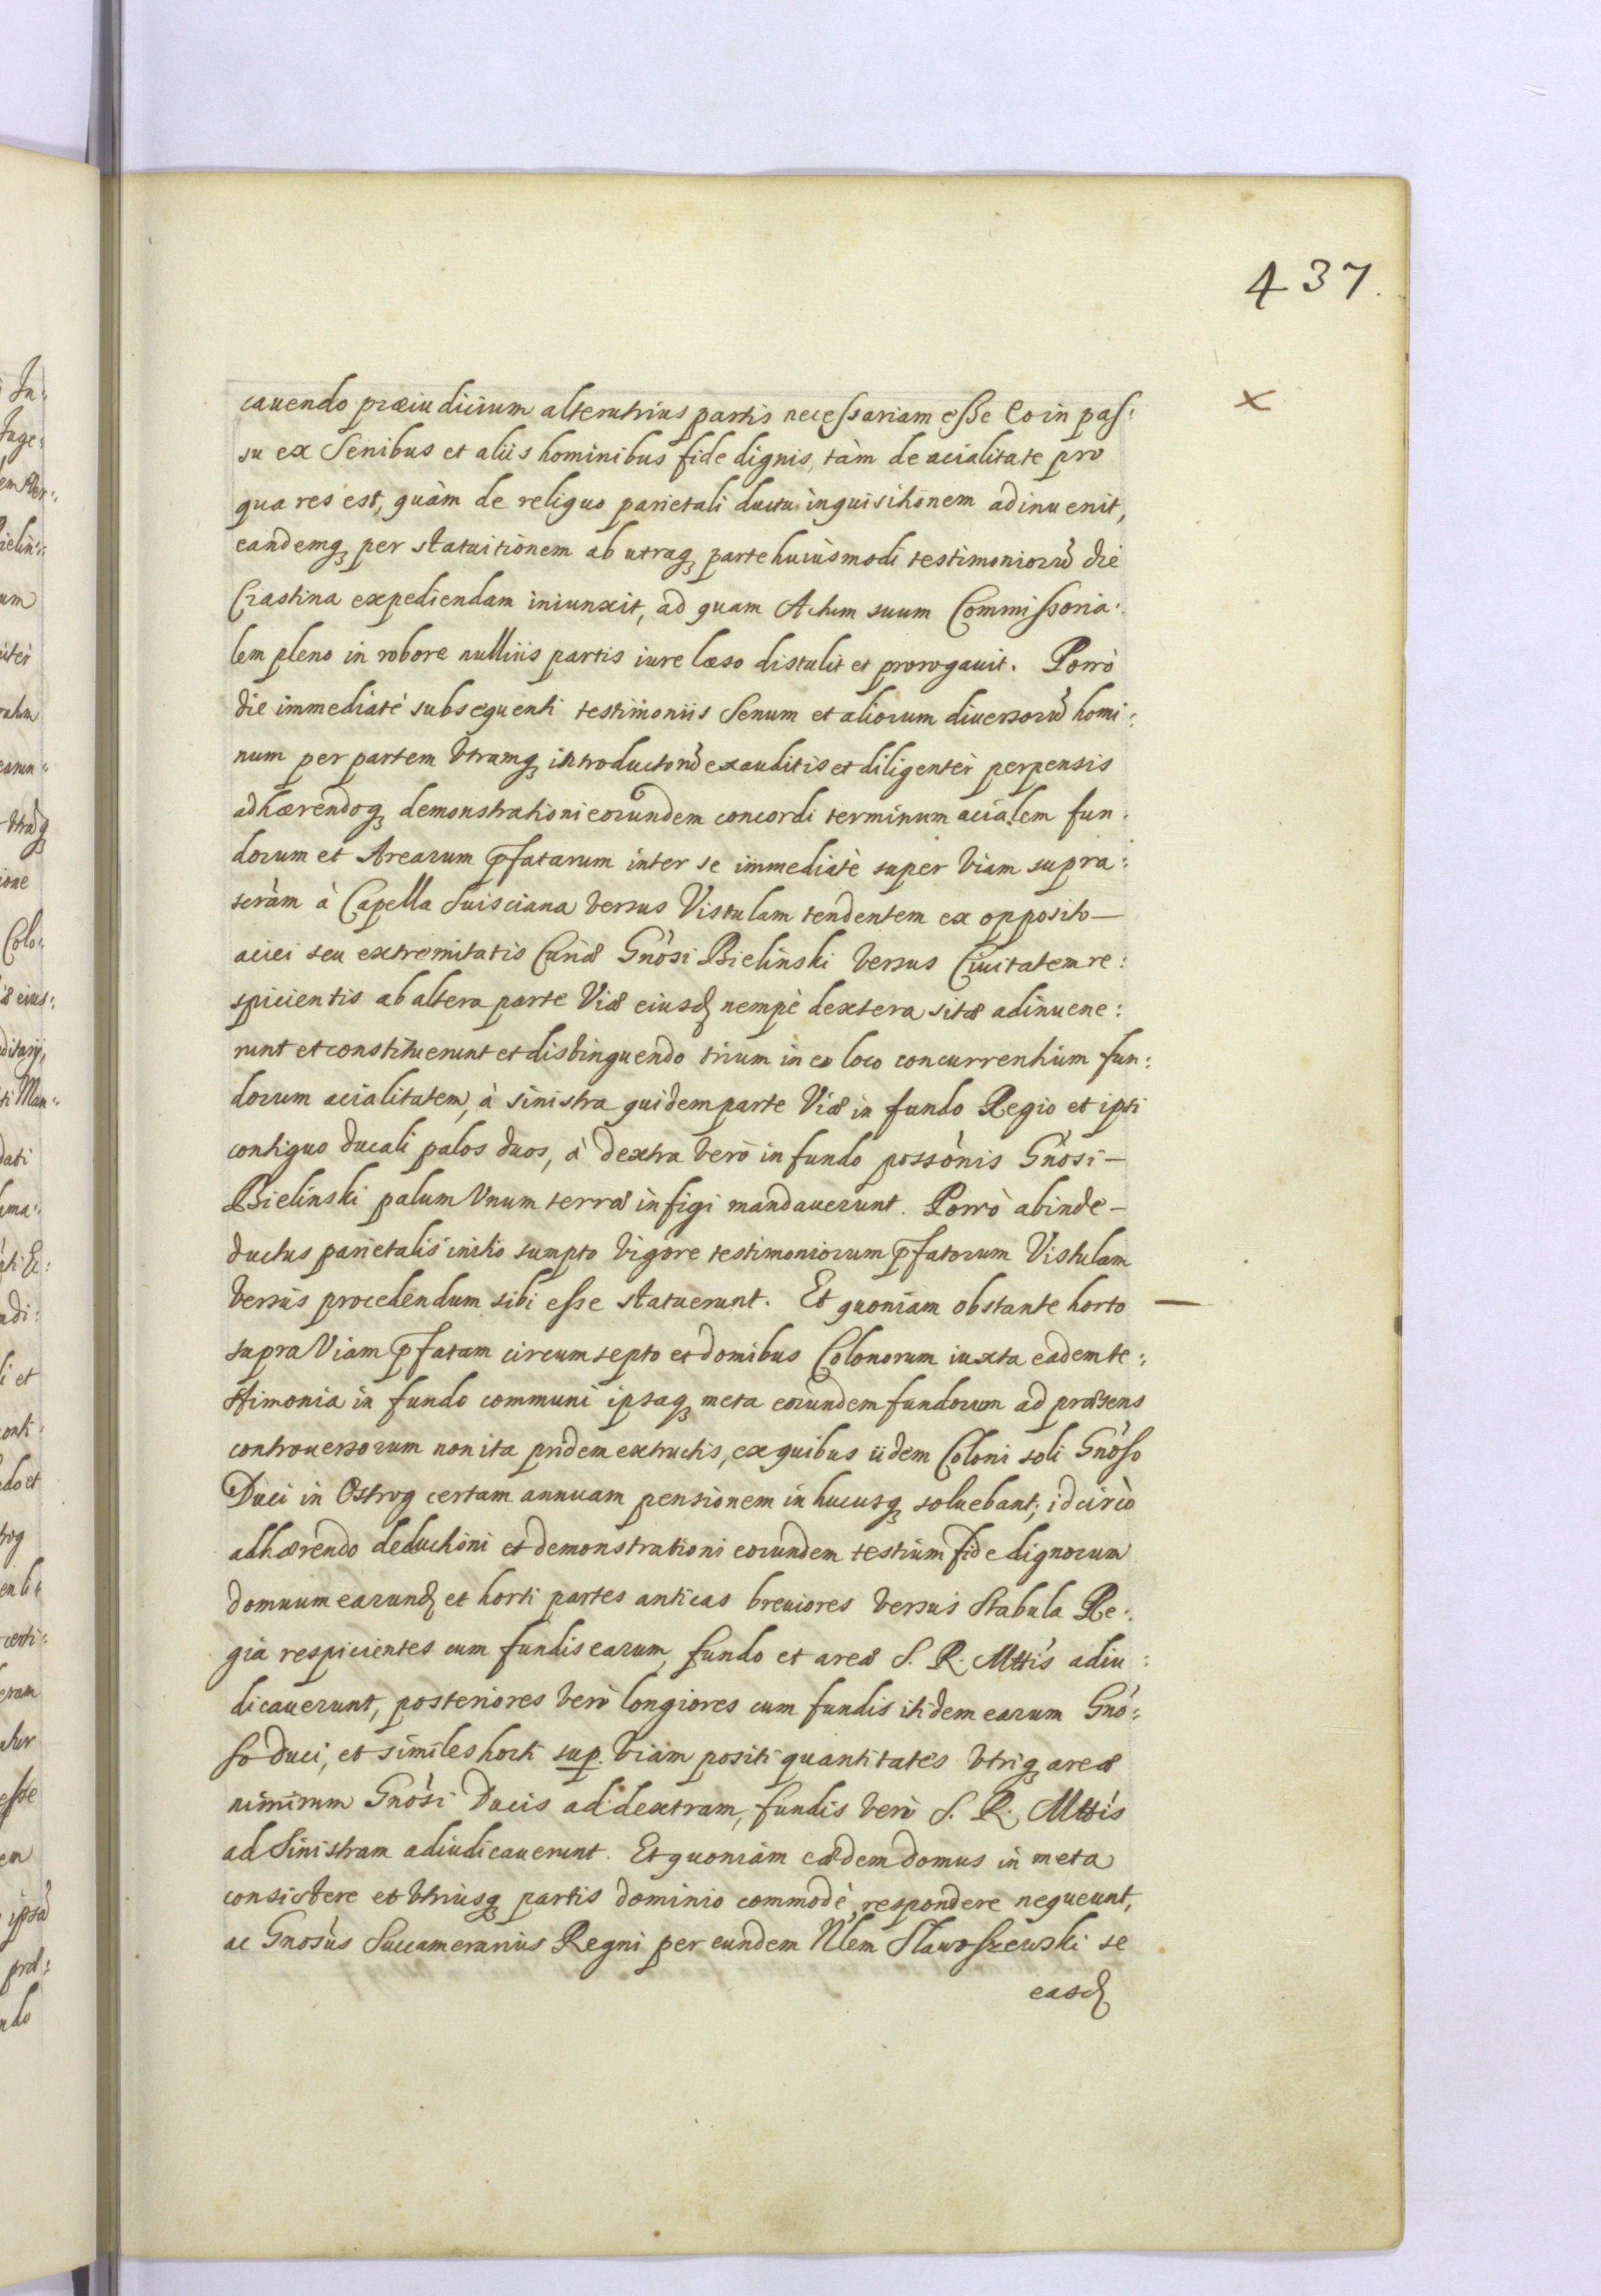 437.
cauendo præiudicium alterutrius partis necessariam esse Eo in pas:
su ex Senibus et aliis hominibus fide dignis, tàm de acialitate pro
qua res est, quàm de reliquo parietali ductu inquisitionem adinuenit,
eandemq₃ per statuitionem ab utraq₃ parte huiusmodi testimoniorū die
Crastina expediendam iniunxit, ad quam Actum suum Commissoria:
lem pleno in robore nullius partis iure læso distulit et prorogauit. Porrò
die immediatè subsequenti testimoniis Senum et aliorum diuersorū homi:
num per partem Vtramq₃ introductorū exauditis et diligentèr perpensis
adhærendoq₃ demonstrationi eorundem concordi terminum acialem fun:
dorum et Arearum p̄fatarum inter se immediatè super Viam supra:
scràm à Capella Suisciana Versus Vistulam tendentem ex opposito —
aciei seu extremitatis Curiæ Gnòsi Bielinski Versus Ciuitatem re:
spicientis ab altera parte Viæ eiusd nempè dextera sitæ adinuene:
runt et constituerunt et distinguendo trium in eo loco concurrentium fun:
dorum acialitatem, à sinistra quidem parte Viæ in fundo Regio et ipsi
contiguo ducali palos duos, à dextra Verò in fundo possònis Gnòsi —
Bielinski palum Vnum terræ infigi mandauerunt. Porrò abinde —
ductus parietalis initio sumpto Vigore testimoniorum p̄fatorum Vistulam
Versùs procedendum sibi esse statuerunt. Et quoniam obstante horto —
supra Viam p̄fatam circumsepto et domibus Colonorum iuxta eadem te:
stimonia in fundo communi ipsaq₃ meta eorundem fundorum ad præsens
controuersorum non ita pridem extructis, ex quibus iidem Coloni soli Gnòso
Duci in Ostrog certam annuam pensionem in hucusq₃ soluebant; idcircò
adhærendo deductioni et demonstrationi eorundem testium fide dignorum
domuum earund et horti partes anticas breuiores Versùs Stabula Re:
gia respicientes cum fundis earum, fundo et areæ S. R. Mttis adiu:
dicauerunt, posteriores Verò longiores cum fundis itidem earum Gnò:
so Duci, et similes horti sup. Viam positi quantitates Vtriq₃ areæ
nimirum Gnòsi Ducis ad dextram, fundis Verò S. R. Mttis
ad Sinistram adiudicauerunt. Et quoniam eædem domus in meta
consistere et Vtriusq₃ partis dominio commodè respondere nequeunt,
ac Gnosùs Succamerarius Regni per eundem Nlem Stawoszewski se
easd